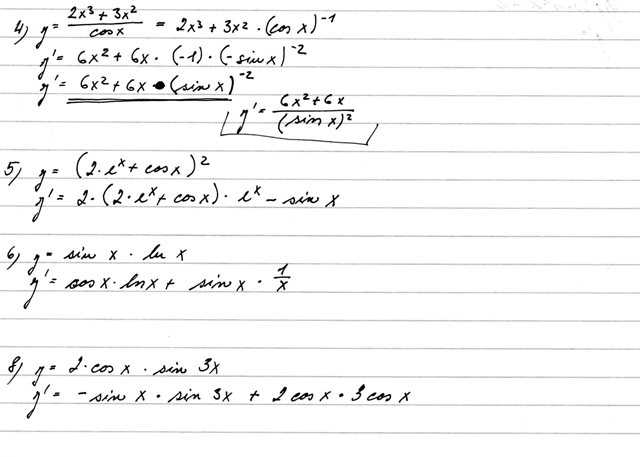 4) y = (2x³ + 3x²)/(cos x) = 2x³ + 3x² · (cos x)⁻¹
y' = 6x² + 6x · (-1) · (-sin x)⁻²
y' = 6x² + 6x · (sin x)⁻²
y' = (6x² + 6x)/(sin x)²
5) y = (2·eˣ + cos x)²
y' = 2·(2·eˣ + cos x) · eˣ - sin x
6) y = sin x · ln x
y' = cos x · ln x + sin x · 1/x
8) y = 2·cos x · sin 3x
y' = -sin x · sin 3x + 2 cos x · 3 cos x